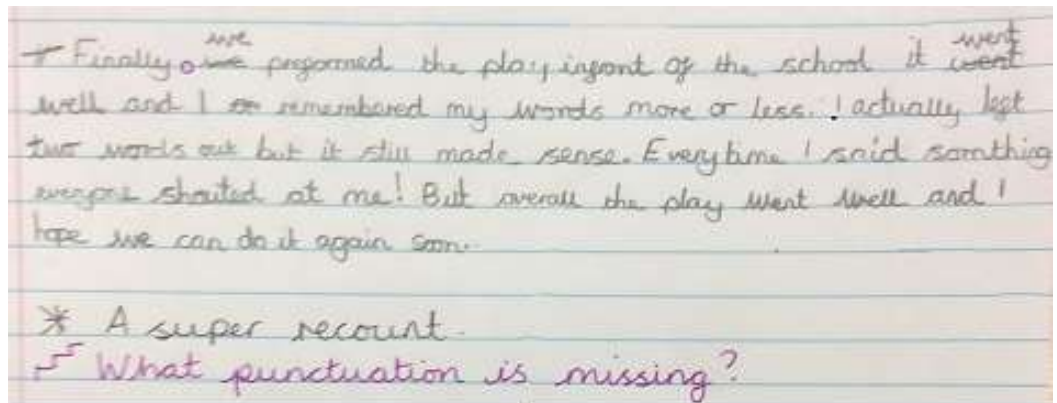 Finally we pregormed the play ingront of the school it went
well and I remembered my words more or less. I actually left
two words out but it still made sense. Everytime I said somthing
everyone shouted at me! But overall the play went well and I
hope we can do it again soon.
* A super recount.
What punctuation is missing?